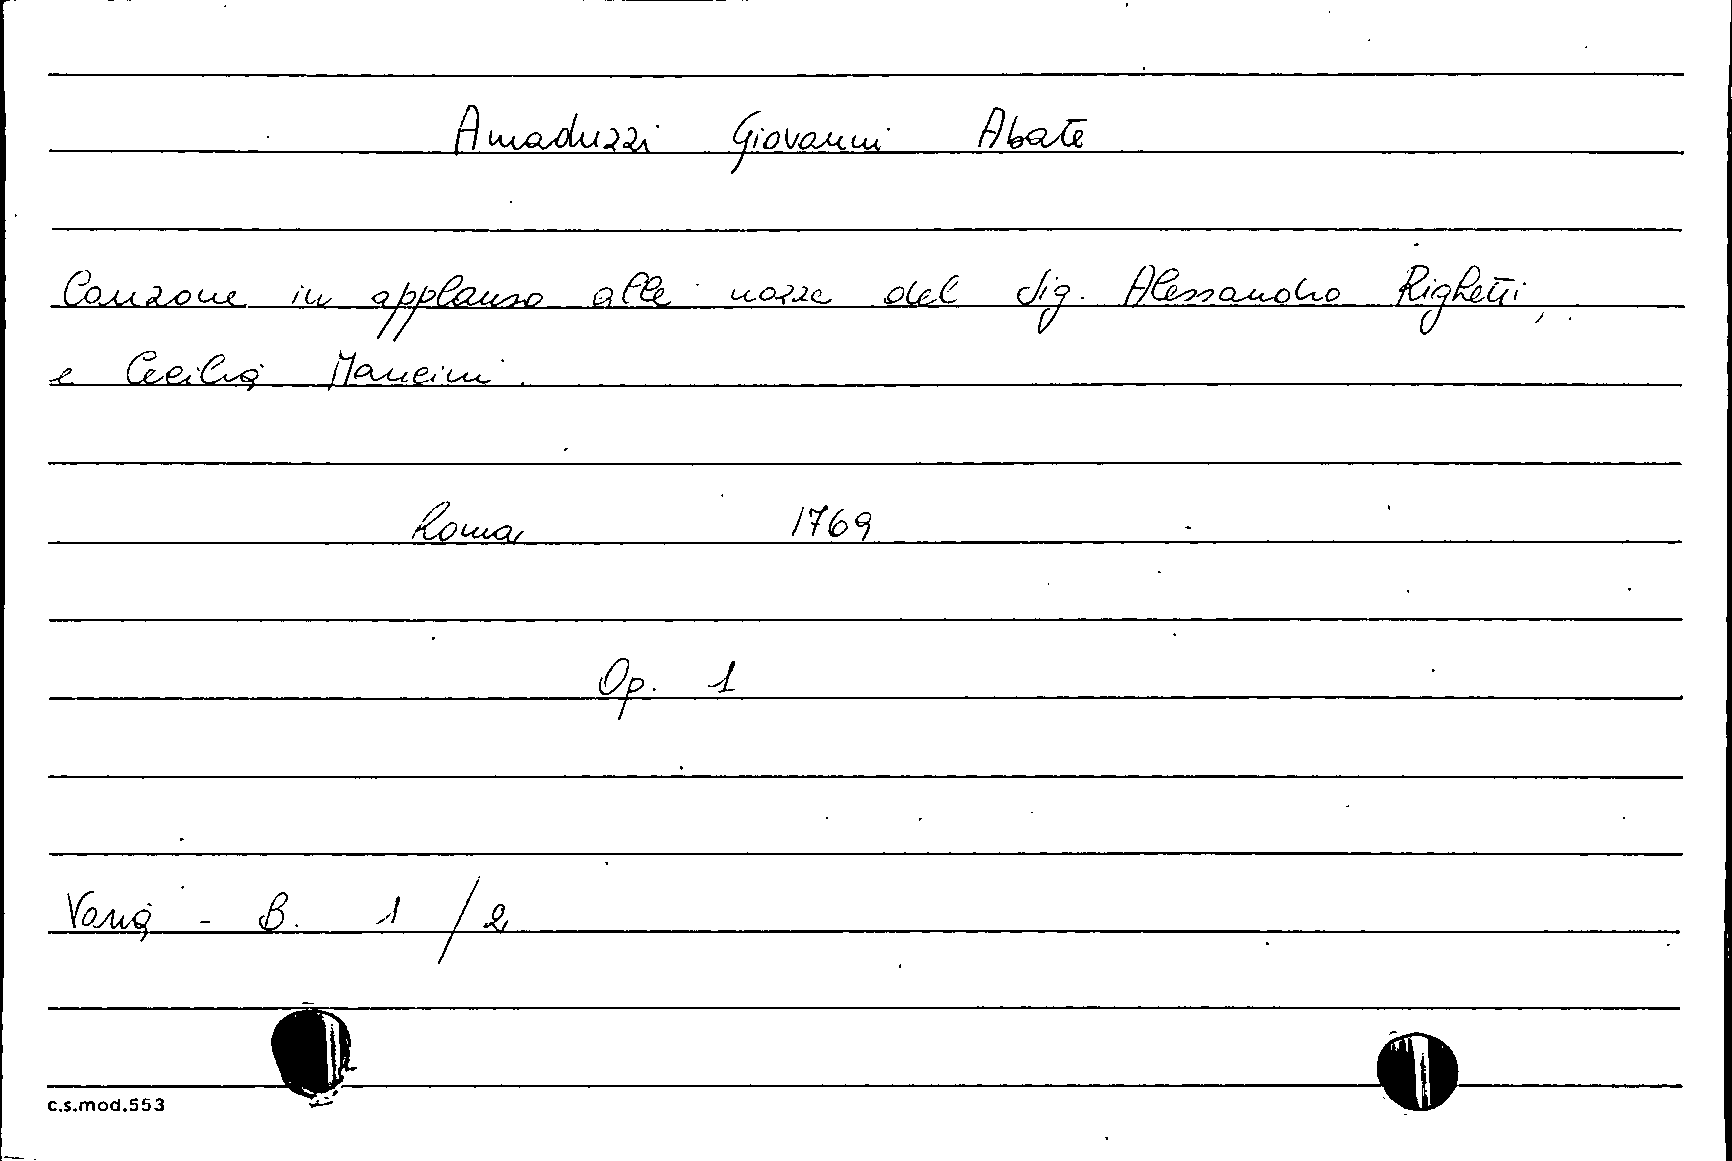 Amaduzzi Giovanni Abate
Canzone in applauso alle nozze del sig. Alessandro Righetti,
e Cecilia Mancini.
Roma 1769
Op. 1
Varia - B. 1 / 2
c.s.mod.553